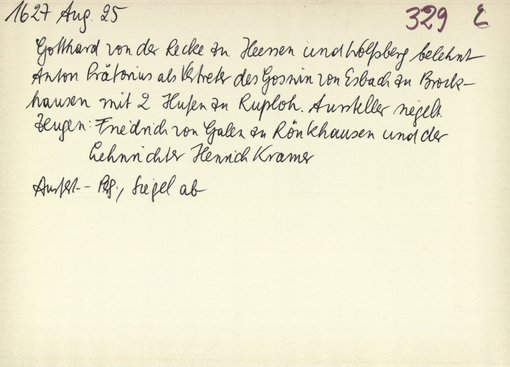 1627 Aug. 25 329 E
Gotthard von der Recke zu Heessen und Wolfsberg belehnt
Anton Prätorius als Vertreter des Goswin von Esbach zu Brock-
hausen mit 2 Hufen zu Ruploh. Aussteller siegelt.
Zeugen: Friedrich von Galen zu Rönkhausen und der
Lehnrichter Henrich Kramer
Ausfert. - Pg., Siegel ab